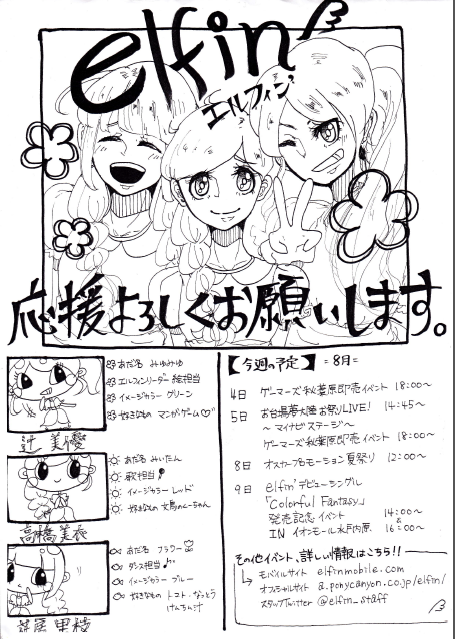 elfin'
エルフィン'
応援よろしくお願いします。
あだ名 みゆみゆ
エルフィンリーダー 絵担当
イメージカラー グリーン
好きなもの マンガ・ゲーム♡
辻 美優
あだ名 みいたん
歌担当
イメージカラー レッド
好きなもの
高橋 美衣
あだ名 フラワー
ダンス担当
イメージカラー ブルー
好きなもの トマト、なっとう
けんちん汁
花房 里枝
【今週の予定】 =8月=
4日 ゲーマーズ秋葉原即売イベント 18:00〜
5日 お台場夢大陸 お祭りLIVE! 14:45〜
〜マイナビステージ〜
ゲーマーズ秋葉原即売イベント 18:00〜
8日 オスカープロモーション夏祭り 12:00〜
9日 elfin'デビューシングル
「Colorful Fantasy」
発売記念イベント 14:00〜
&
IN イオンモール水戸内原 16:00〜
その他イベント、詳しい情報はこちら!!
モバイルサイト elfinmobile.com
オフィシャルサイト a.ponycanyon.co.jp/elfin/
スタッフTwitter @elfin_staff